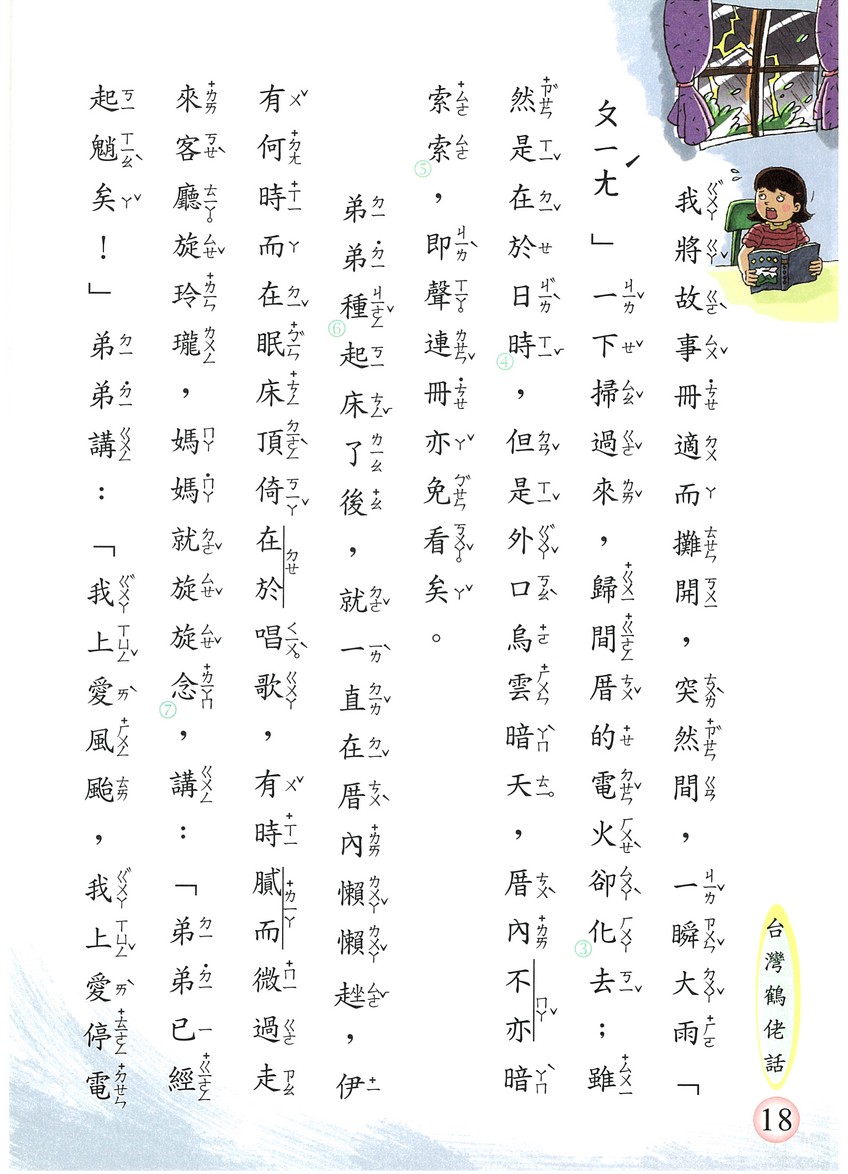 我將故事冊適而攤開，突然間，一瞬大雨「
ㄆㄧㄤˊ」一下掃過來，歸間厝的電火卻化③去；雖
然是在於日時④，但是外口烏雲暗天，厝內不亦暗
索索⑤，即聲連冊亦免看矣。
弟弟種⑥起床了後，就一直在厝內懶懶趖，伊
有何時而在眠床頂倚在於唱歌，有時膩而微過走
來客廳旋玲瓏，媽媽就旋旋念⑦，講：「弟弟已經
起魈矣！」弟弟講：「我上愛風颱，我上愛停電
台灣鶴佬話
18